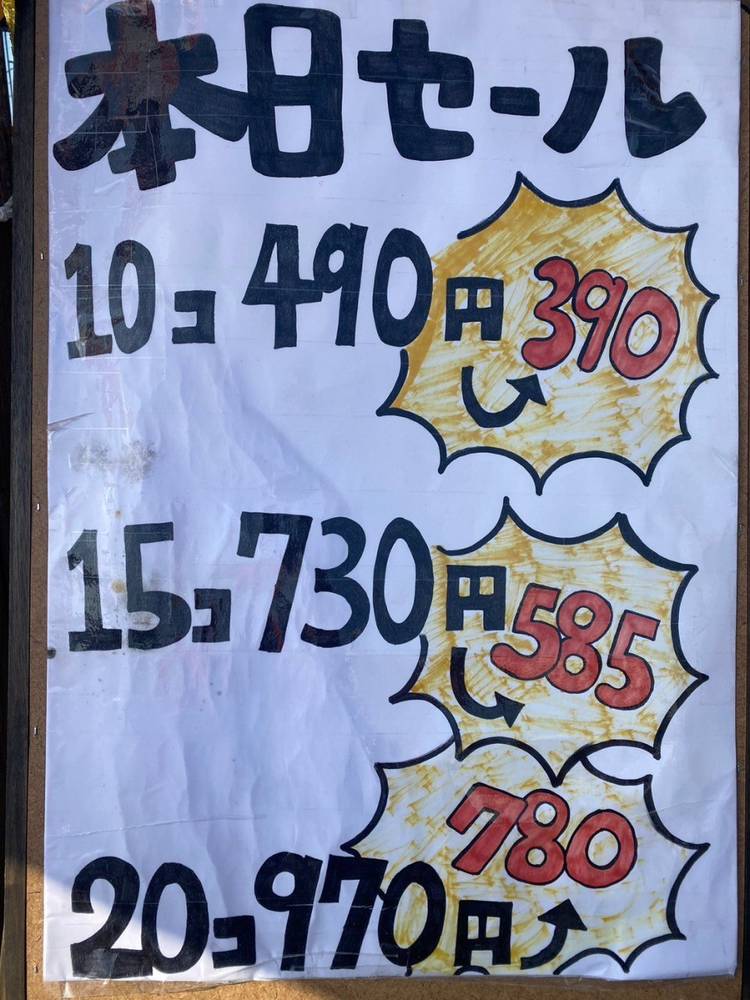 本日セール
10コ 490円 390
15コ 730円 585
780
20コ 970円